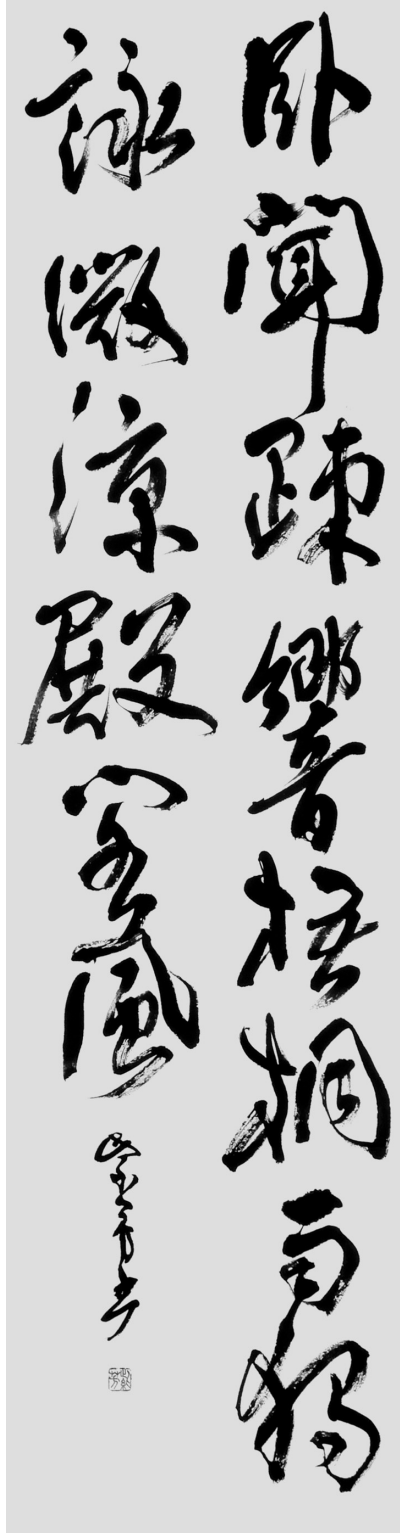 卧聞疎響梧桐雨獨
詠微涼殿閣風